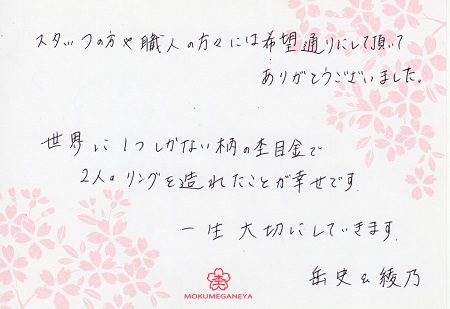 スタッフの方や職人の方々には希望通りにして頂いて
ありがとうございました。
世界に1つしかない柄の杢目金で
2人のリングを造れたことが幸せです。
一生大切にしていきます。
岳史&綾乃
MOKUMEGANEYA